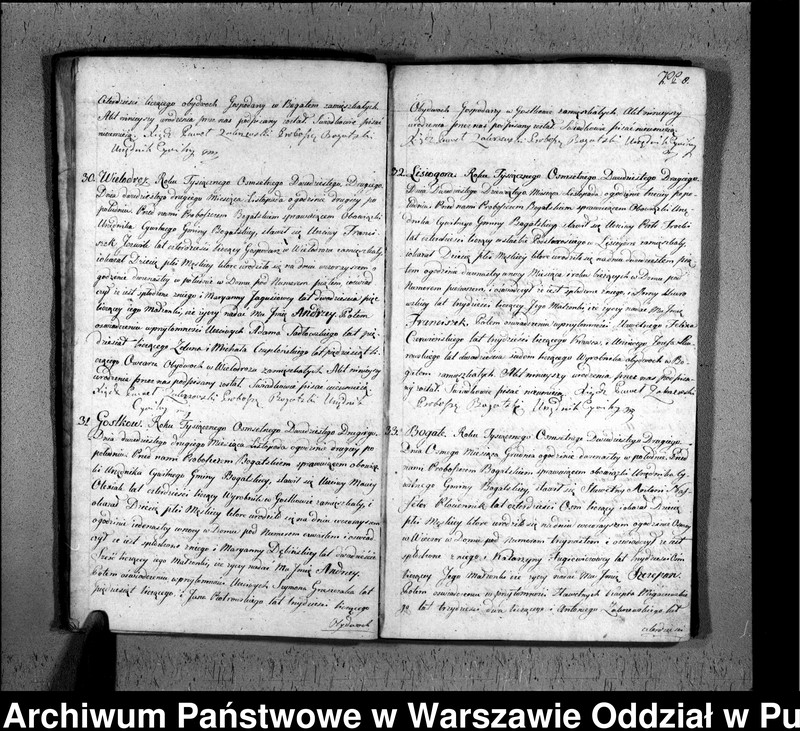 czterdzieści liczącego obydwoch Gospodarzy w Bogatem zamieszkałych
Akt niniejszy urodzenia przez nas podpisany został Świadkowie pisać
nieumieją Xiądz Paweł Zalewski Proboszcz Bogatski
Urzędnik Cywilny
30. Wielodroż. Roku Tysiącznego Osmsetnego Dwudziestego Drugiego
Dnia dwudziestego drugiego Miesiąca Listopada o godzinie drugiey po
południu Przed nami Proboszczem Bogatskim sprawuiącem Obowiązki
Urzędnika Cywilnego Gminy Bogatskiey, stawił się Uczciwy Franci
szek lat czterdzieści liczący Gospodarz w Wielodrożu zamieszkały
i okazał Dziecie płci Męskiey które urodziło się na dniu wczorayszem
godzinie dwunastey w południe w Domu pod Numerem piątem, oświad
czył iż iest spłodzone z niego i Maryanny lat dwadzieścia pięć
liczącey iego Małżonki, iże życzy nadać Mu Jmię Andrzey. Potem
oświadczeniu w przytomności Uczciwych Adama Sadłowskiego lat pięć
dziesiąt liczącego i Michała Czaplińskiego lat pięćdziesiąt li
czącego Owczarza Obydwoch w Wielodrożu zamieszkałych. Akt niniejszy
urodzenia przez nas podpisany został. Świadkowie pisać nieumieją
Xiądz Paweł Zalewski Proboszcz Bogatski Urzędnik
Cywilny
31. Gostkow. Roku Tysiącznego Osmsetnego Dwudziestego Drugiego,
Dnia dwudziestego drugiego Miesiąca Listopada o godzinie drugiey po
południu. Przed nami Proboszczem Bogatskim sprawuiącem obowiąz
ki Urzędnika Cywilnego Gminy Bogatskiey, stawił się Uczciwy Maciey
lat czterdzieści liczący Wyrobnik w Gostkowie zamieszkały, i
okazał Dziecie płci Męskiey które urodziło się na dniu wczorayszem
o godzinie iedenastey w Domu pod Numerem czwartem i oświad
czył iż iest spłodzone z niego i Maryanny Dębińskiey lat dwadzieścia
sześć liczącey iego Małżonki, iże życzy nadać Mu Jmię Andrzey.
Potem oświadczeniu w przytomności Uczciwych Szymona lat
pięćdziesiąt liczącego i Jana Piotrowskiego lat trzydzieści liczącego
Obydwoch
8.
Obydwoch Gospodarzy w Gostkowie zamieszkałych. Akt niniejszy
urodzenia przez nas podpisany został Świadkowie pisać nieumieją
Xiądz Paweł Zalewski Proboszcz Bogatski Urzędnik Cywilny
32. Lisiogora. Roku Tysiącznego Osmsetnego Dwudziestego Drugiego
Dnia Dwudziestego Miesiąca Listopada o godzinie trzeciey popo
łudniu Przed nami Proboszczem Bogatskim sprawuiącem Obowiązki Urzę
dnika Cywilnego Gminy Bogatskiey stawił się Uczciwy Piotr
lat czterdzieści liczący w Lisiejgorze zamieszkały
i okazał Dziecie płci Męskiey które urodziło się na dniu dwudziestem pią
tem o godzinie dwunastey w nocy Miesiąca i roku bieżących w Domu pod
Numerem pierwszem, i oświadczył iż iest spłodzone z niego, i Anny
lat trzydzieści liczącey Jego Małżonki iże życzy nadać Mu Jmię
Franciszek. Potem oświadczeniu w przytomności Felixa
lat trzydzieści liczącego Krawca, i Uczciwego Jozefa
lat dwadzieścia siedem liczącego Wyrobnika obydwoch w Bo
gatem zamieszkałych. Akt niniejszy urodzenia przez nas podpisa
ny został Świadkowie pisać nieumieją Xiądz Paweł Zalewski
Proboszcz Bogatski Urzędnik Cywilny
33. Bogate. Roku Tysiącznego Osmsetnego Dwudziestego Drugiego
Dnia Osmego Miesiąca Grudnia o godzinie dwunastey w południe. Przed
nami Proboszczem Bogatskim sprawuiącem obowiązki Urzędnika Cy
wilnego Gminy Bogatskiey, stawił się Sławetny Antoni
lat czterdzieści Osm liczący i okazał Dziecie
płci Męskiey które urodziło się na dniu wczorayszem o godzinie Osmey
w Wieczor w Domu pod numerem trzynastem i oświadczył iż iest
spłodzone z niego i Katarzyny lat trzydzieści Osm
liczącey Jego Małżonki iże życzy nadać Mu Jmię Szczepan.
Potem oświadczeniu w przytomności Sławetnych
lat trzydzieści dwa liczącego i Antoniego Zalewskiego lat
czterdzieści
Archiwum Państwowe w Warszawie Oddział w Pu